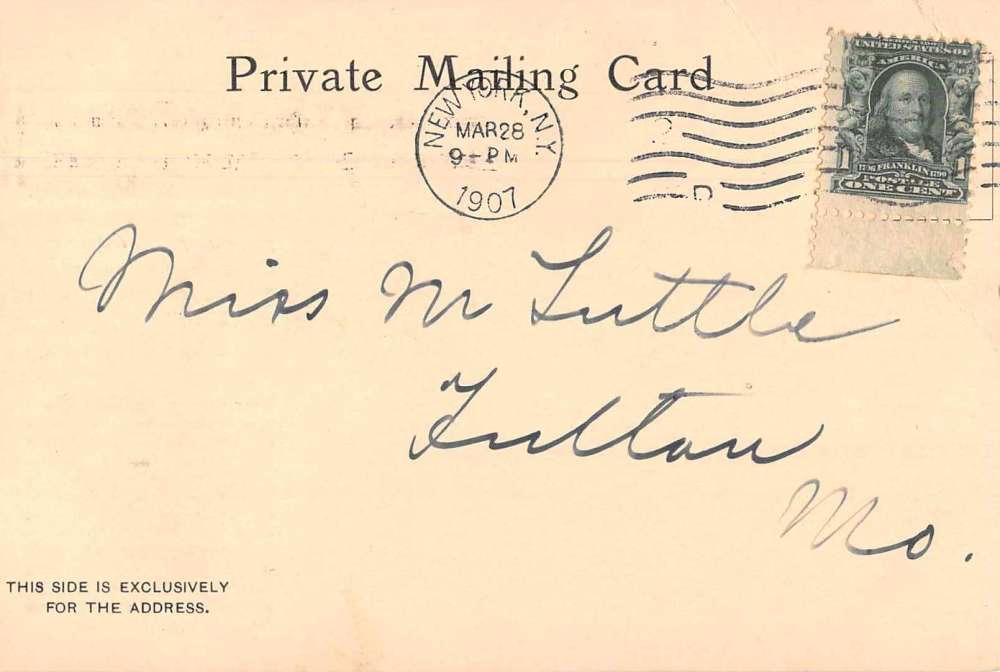 Private Mailing Card
NEW YORK, N.Y.
MAR 28
9 - PM
1907
D
UNITED STATES OF
AMERICA
1 1
FRANKLIN
ONE CENT
Miss M Tuttle
Fulton
Mo.
THIS SIDE IS EXCLUSIVELY
FOR THE ADDRESS.